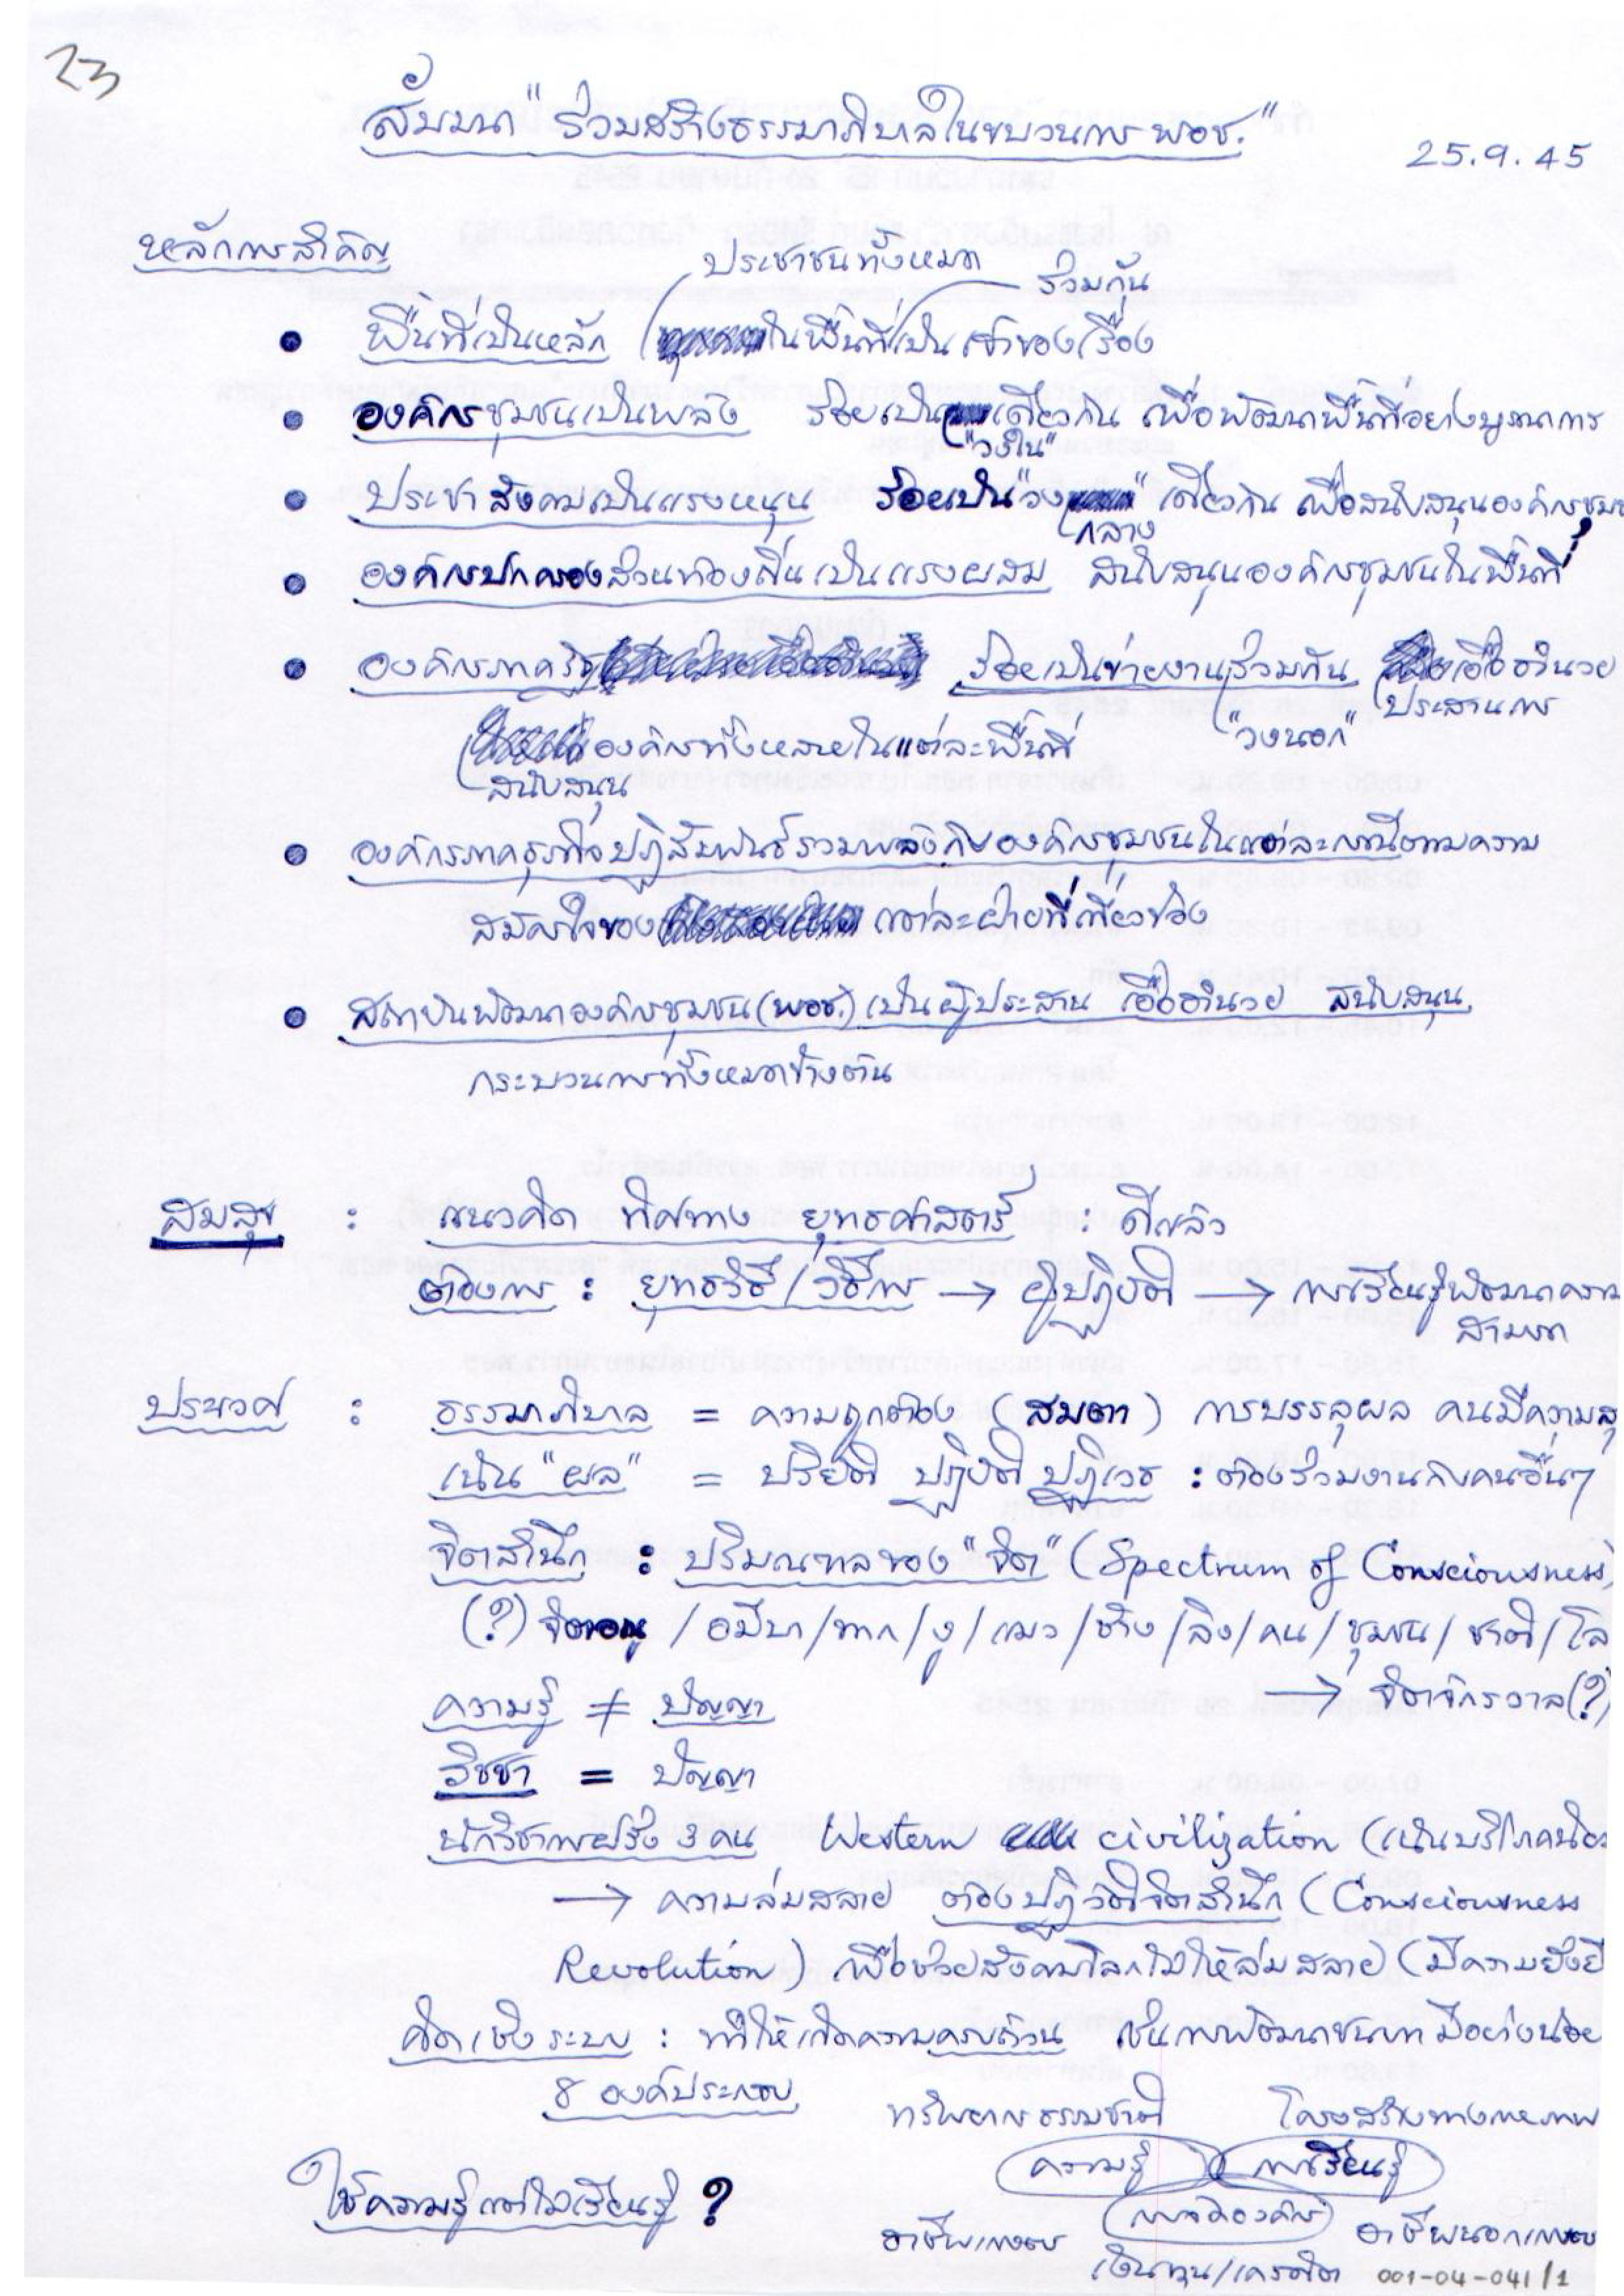 23
สัมมนา "ร่วมสร้างธรรมาภิบาลในขบวนการ พอช."
25.9.45
หลักการสำคัญ
ประชาชนทั้งหมด
ร่วมกัน
• พื้นที่เป็นหลัก ในพื้นที่เป็นเจ้าของเรื่อง
• องค์กรชุมชนเป็นพลัง ร้อยเป็น เดียวกัน เพื่อพัฒนาพื้นที่อย่างบูรณาการ
"วงใน"
• ประชาสังคมเป็นแรงหนุน ร้อยเป็น "วง " เดียวกัน เพื่อสนับสนุนองค์กรชุมช
กลาง
• องค์กรปกครองส่วนท้องถิ่นเป็นแรงผสม สนับสนุนองค์กรชุมชนในพื้นที่
• องค์กรภาครัฐ ร้อยเป็นข่ายงานร่วมกัน เอื้ออำนวย
"วงนอก" ประสานการ
องค์กรทั้งหลายในแต่ละพื้นที่
สนับสนุน
• องค์กรภาคธุรกิจปฏิสัมพันธ์รวมพลังกับองค์กรชุมชนในแต่ละกรณีตามความ
สมัครใจของ แต่ละฝ่ายที่เกี่ยวข้อง
• สถาบันพัฒนาองค์กรชุมชน (พอช.) เป็นผู้ประสาน เอื้ออำนวย สนับสนุน
กระบวนการทั้งหมดข้างต้น
สมสุข : แนวคิด ทิศทาง ยุทธศาสตร์ : ดีแล้ว
ต้องการ : ยุทธวิธี / วิธีการ → ผู้ปฏิบัติ → การเรียนรู้พัฒนาความ
สามารถ
ประเวศ : ธรรมาภิบาล = ความถูกต้อง (สมตา) การบรรลุผล คนมีความสุ
เน้น "ผล" = ปริยัติ ปฏิบัติ ปฏิเวธ : ต้องร่วมงานกับคนอื่นๆ
จิตสำนึก : ปริมณฑลของ "จิต" (Spectrum of Consciousness)
(?) จิตอณู / อมีบา / ทาก / งู / แมว / ช้าง / ลิง / คน / ชุมชน / ชาติ / โล
→ จิตจักรวาล (?)
ความรู้ ≠ ปัญญา
วิชชา = ปัญญา
นักวิชาการฝรั่ง 3 คน Western civilization (เน้นบริโภคนิย
→ ความล่มสลาย ต้องปฏิวัติจิตสำนึก (Consciousness
Revolution) เพื่อช่วยสังคมโลกไม่ให้ล่มสลาย (มีความยั่งยื
คิดเชิงระบบ : ทำให้เกิดความครบถ้วน เช่นการพัฒนาชนบท มีอย่างน้อย
8 องค์ประกอบ
ทรัพยากรธรรมชาติ โครงสร้างทางกายภาพ
ความรู้ การเรียนรู้
ใช้ความรู้แต่ไม่เรียนรู้ ?
การจัดองค์กร
อาชีพเกษตร อาชีพนอกเกษตร
เงินทุน/เครดิต
001-04-041/1